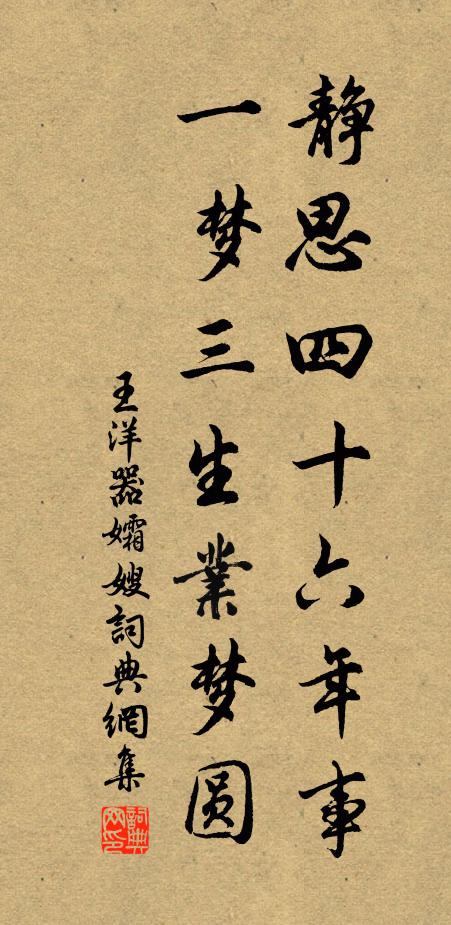 静思四十六年事
一梦三生業梦圆
王洋器孀嫂詞典網集
詞典网印